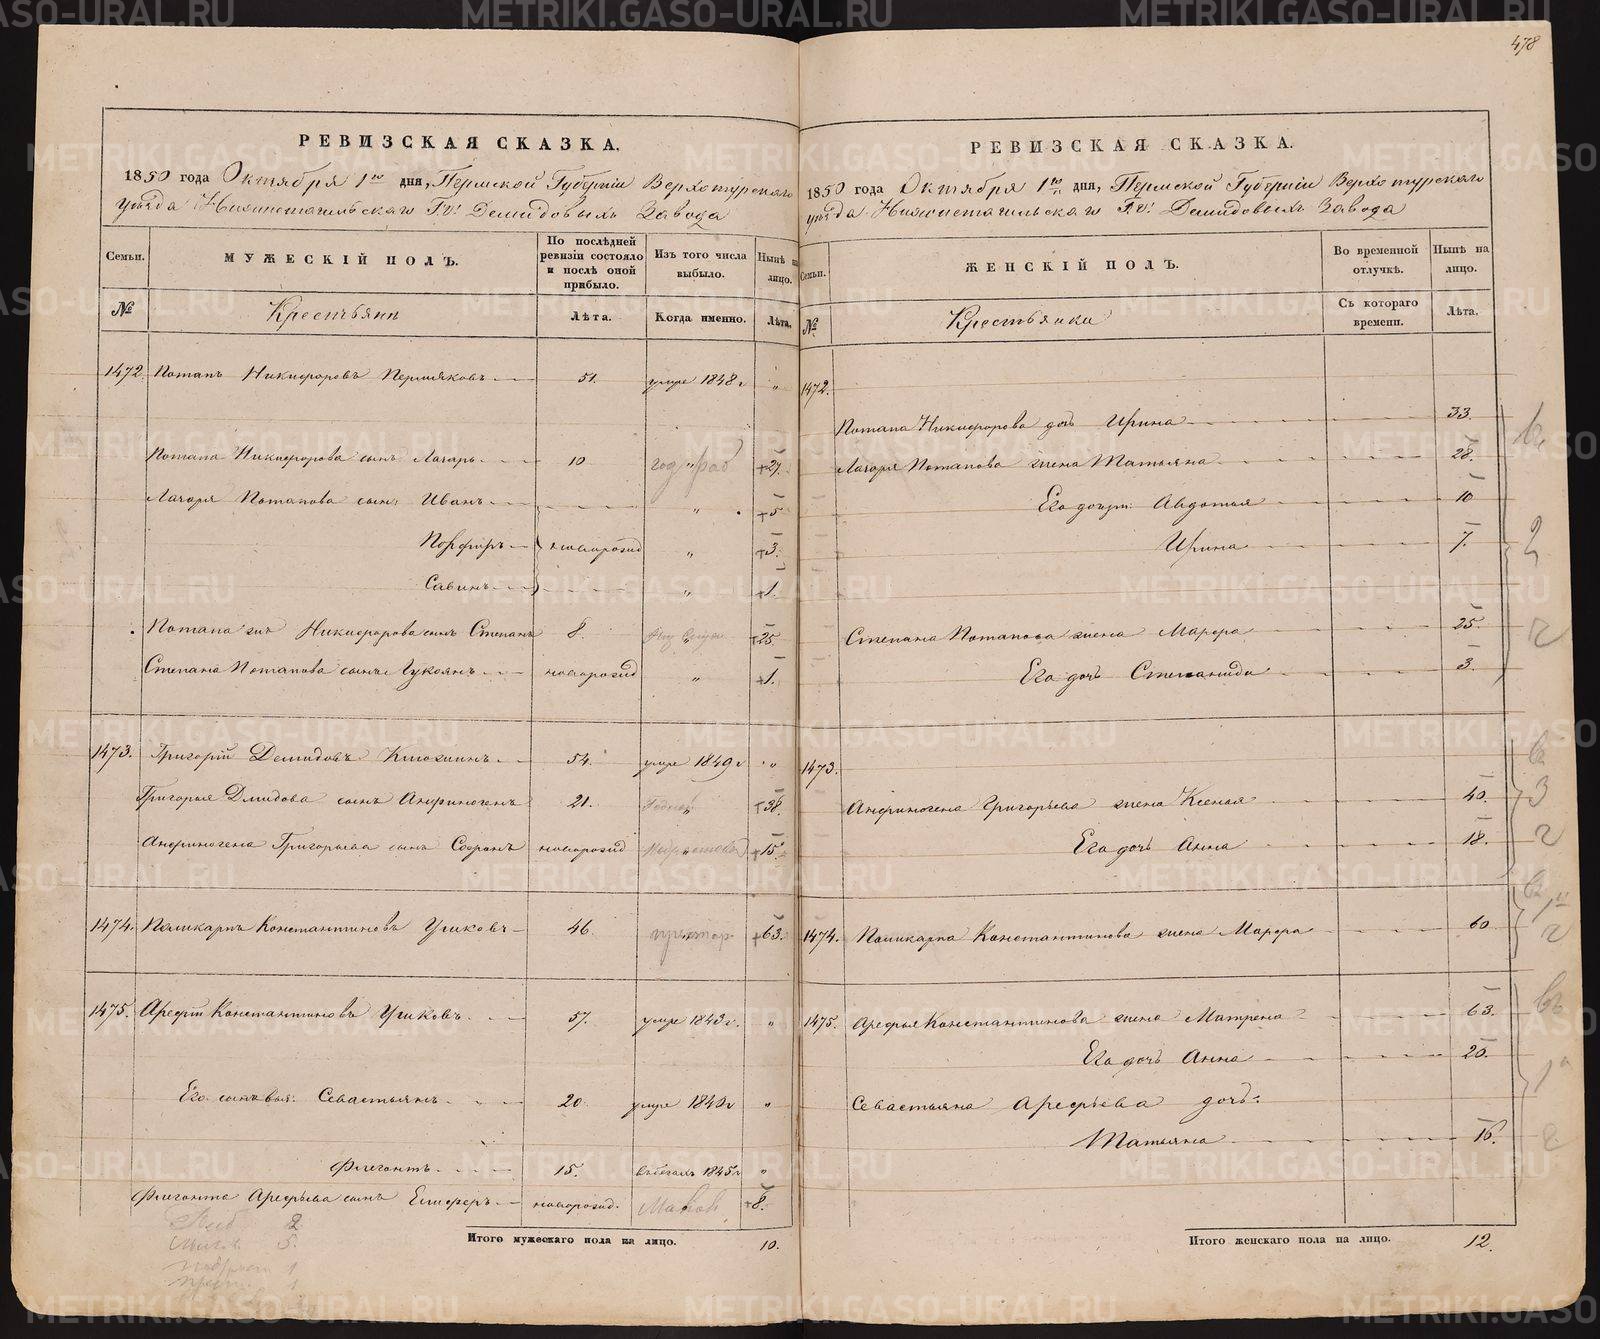 478
РЕВИЗСКАЯ СКАЗКА.
1850 года Октября 1го дня, Пермской Губерніи Верхотурскаго
уѣзда Нижнетагильскаго Г.г. Демидовыхъ Завода
Семьи. МУЖЕСКІЙ ПОЛЪ. По послѣдней ревизіи состояло и послѣ оной прибыло. Изъ того числа выбыло. Нынѣ на лицо.
№ Крестьянъ Лѣта. Когда именно. Лѣта.
1472. Потапъ Никифоровъ Пермяковъ 51. умре 1848 г "
Потапа Никифорова сынъ Лазарь 10 год " раб 27.
Лазаря Потапова сын: Иванъ " 5
Порфиръ новорожд " 3.
Савинъ " 1.
Потапа Никифорова сынъ Степанъ 8. " 25
Степана Потапова сынъ Лукоянъ новорожд " 1.
1473. Григорій Демидовъ 54. умре 1849 г "
Григорья Дмидова сынъ Анфиногенъ 21. " 38.
Анфиногена Григорьева сынъ Софронъ новорожд " 15
1474. Поликарпъ Константиновъ Ушковъ 46. 63.
1475. Арефій Константиновъ Ушковъ 57. умре 1843 г. "
Его сыновья: Севастьянъ 20. умре 1840 г "
Флегонтъ 15. въ бегахъ 1845 г "
Флегонта Арефьева сынъ новорожд. 8.
Итого мужескаго пола на лицо. 10.
РЕВИЗСКАЯ СКАЗКА.
1850 года Октября 1го дня, Пермской Губерніи Верхотурскаго
уѣзда Нижнетагильскаго Г.г. Демидовыхъ Завода
Семьи. ЖЕНСКІЙ ПОЛЪ. Во временной отлучкѣ. Нынѣ на лицо.
№ Крестьянки Съ котораго времени. Лѣта.
1472.
Потапа Никифорова дочь Ирина 33.
Лазаря Потапова жена Татьяна 28.
Его дочери: Авдотья 10
Ирина 7.
Степана Потапова жена Марфа 25
Его дочь Степанида 3.
1473.
Анфиногена Григорьева жена Ксенья 40.
Его дочь Анна 18.
1474. Поликарпа Константинова жена Марфа 60
1475. Арефья Константинова жена Матрена 63.
Его дочь Анна 20.
Севастьяна Арефьева дочь:
Татьяна 16.
Итого женскаго пола на лицо. 12.
METRIKI.GASO-URAL.RU